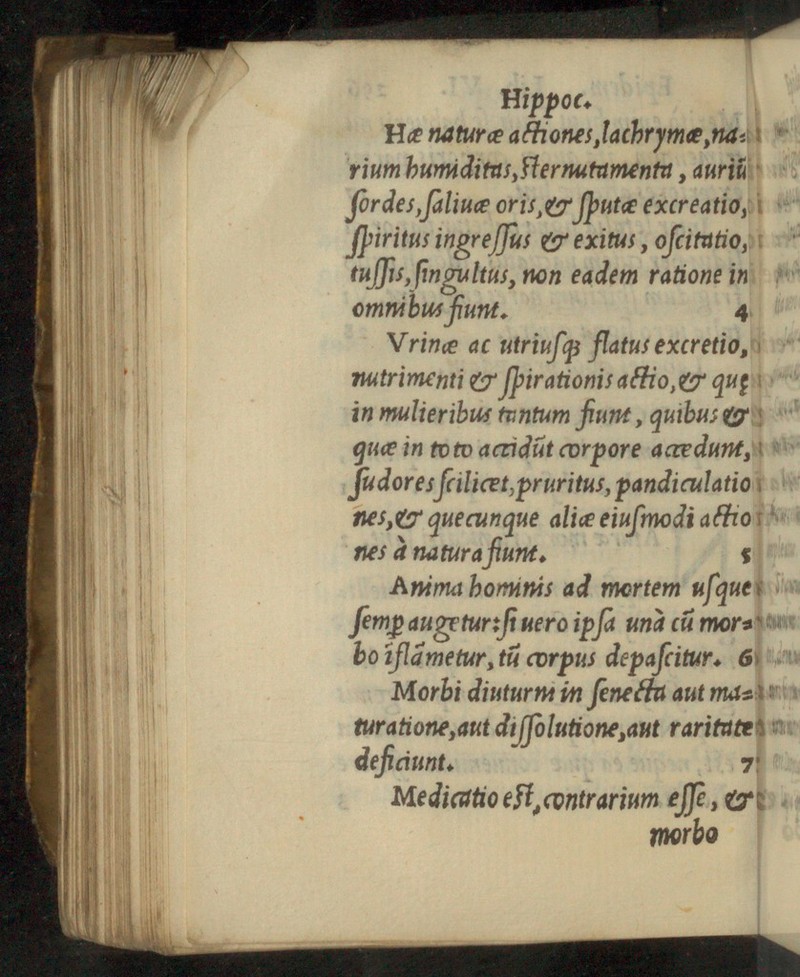 Hippoc.
Hæ naturæ actiones, lachrymæ, na=
rium humiditas, sternutamenta, auriũ
sordes, saliuæ oris, & sputæ excreatio,
spiritus ingressus & exitus, oscitatio,
tussis, singultus, non eadem ratione in
omnibus fiunt. 4
Vrinæ ac utriusq; flatus excretio,
nutrimenti & spirationis actio, & quę
in mulieribus tantum fiunt, quibus &
quæ in toto accidũt corpore accedunt,
sudores scilicet, pruritus, pandiculatio
nes, & quecunque aliæ eiusmodi actio
nes à natura fiunt. 5
Anima hominis ad mortem usque
semꝑ augetur: si uero ipsa unà cũ mor=
bo ĩflãmetur, tũ corpus depascitur. 6
Morbi diuturni in senecta aut ma=
turatione, aut dissolutione, aut raritate
deficiunt. 7
Medicatio est, contrarium esse, &
morbo